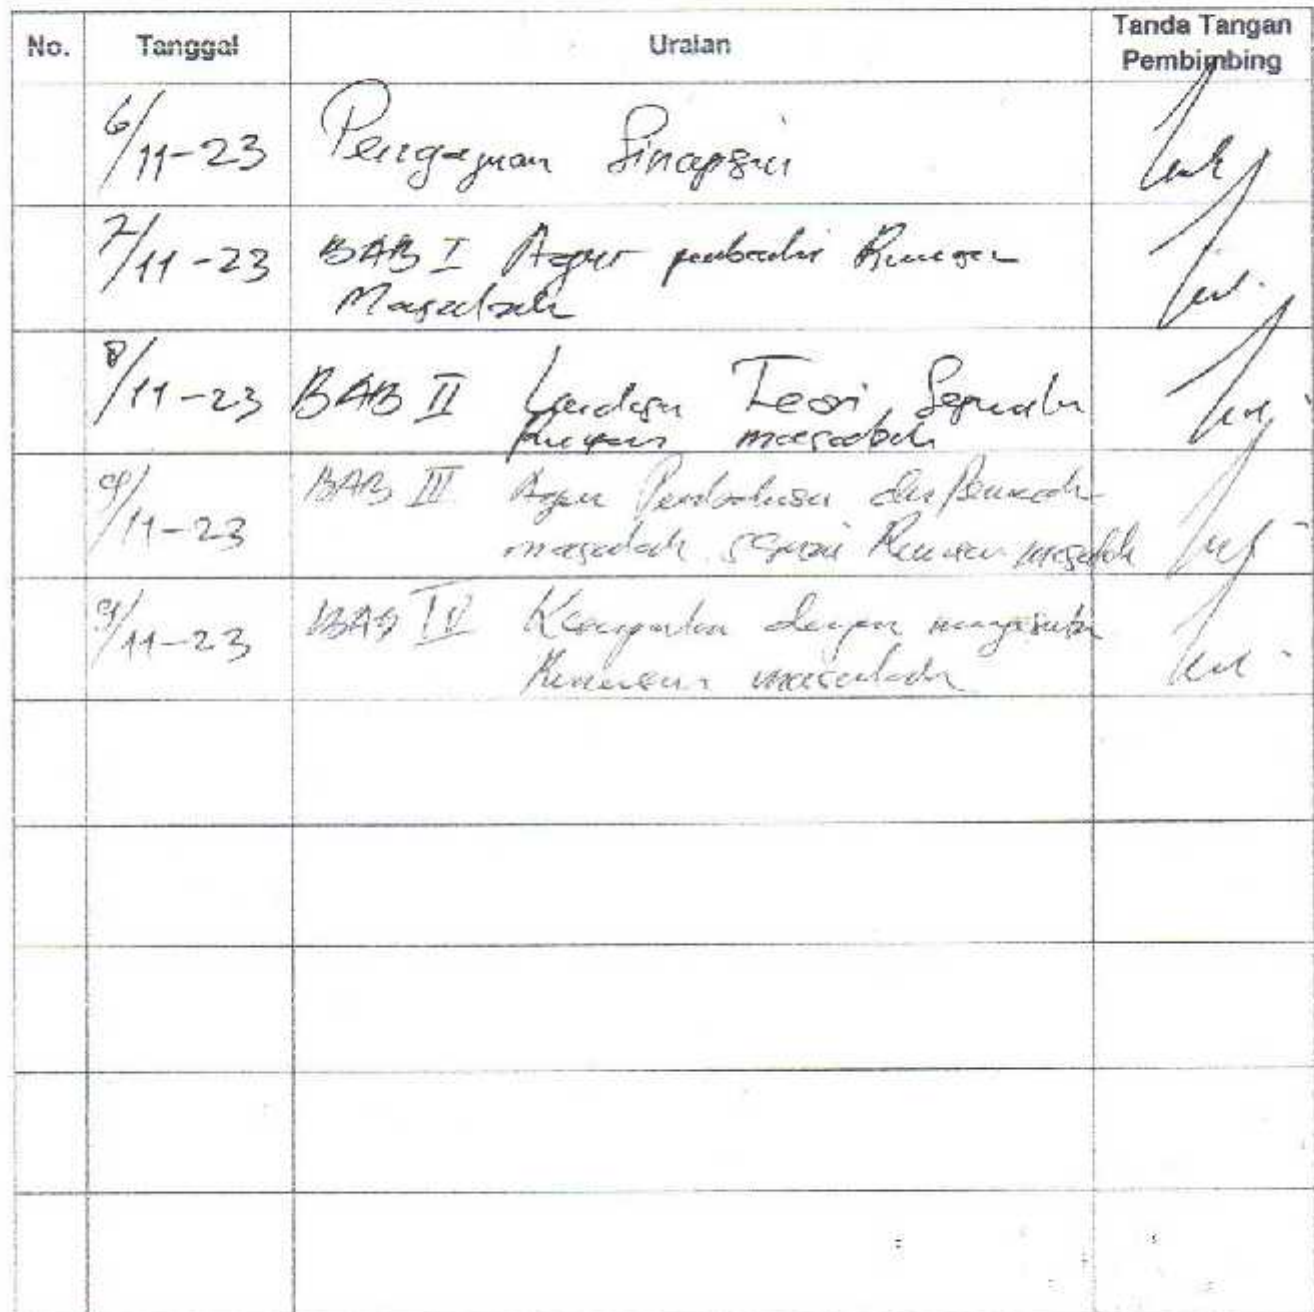 No. Tanggal Uraian Tanda Tangan
Pembimbing
6/11-23 Pengajuan Sinopsis
7/11-23 BAB I Agar Rumusan
Masalah
8/11-23 BAB II Landasan Teori
Rumusan masalah
9/11-23 BAB III Agar Pembahasan
masalah sesuai Rumusan masalah
9/11-23 BAB IV Kesimpulan dengan
Rumusan masalah